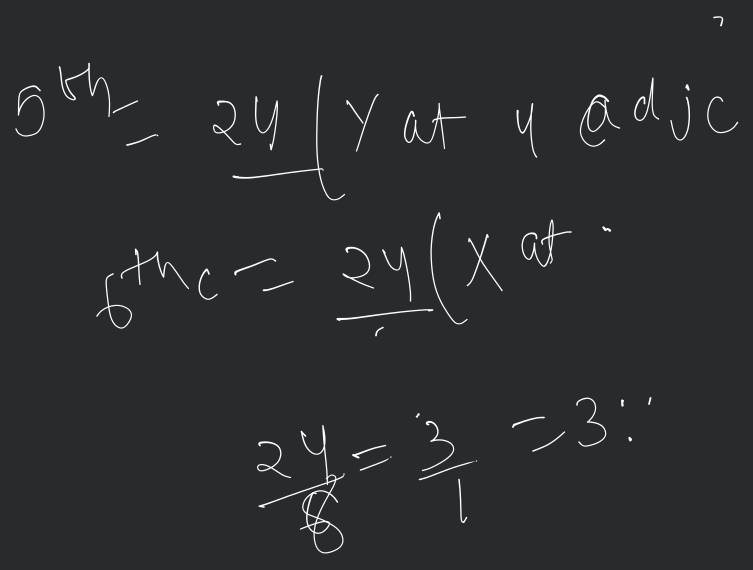 5th = 24 (Y at 4 adjc
6th c = 24 (X at
24/8 = 3/1 = 3